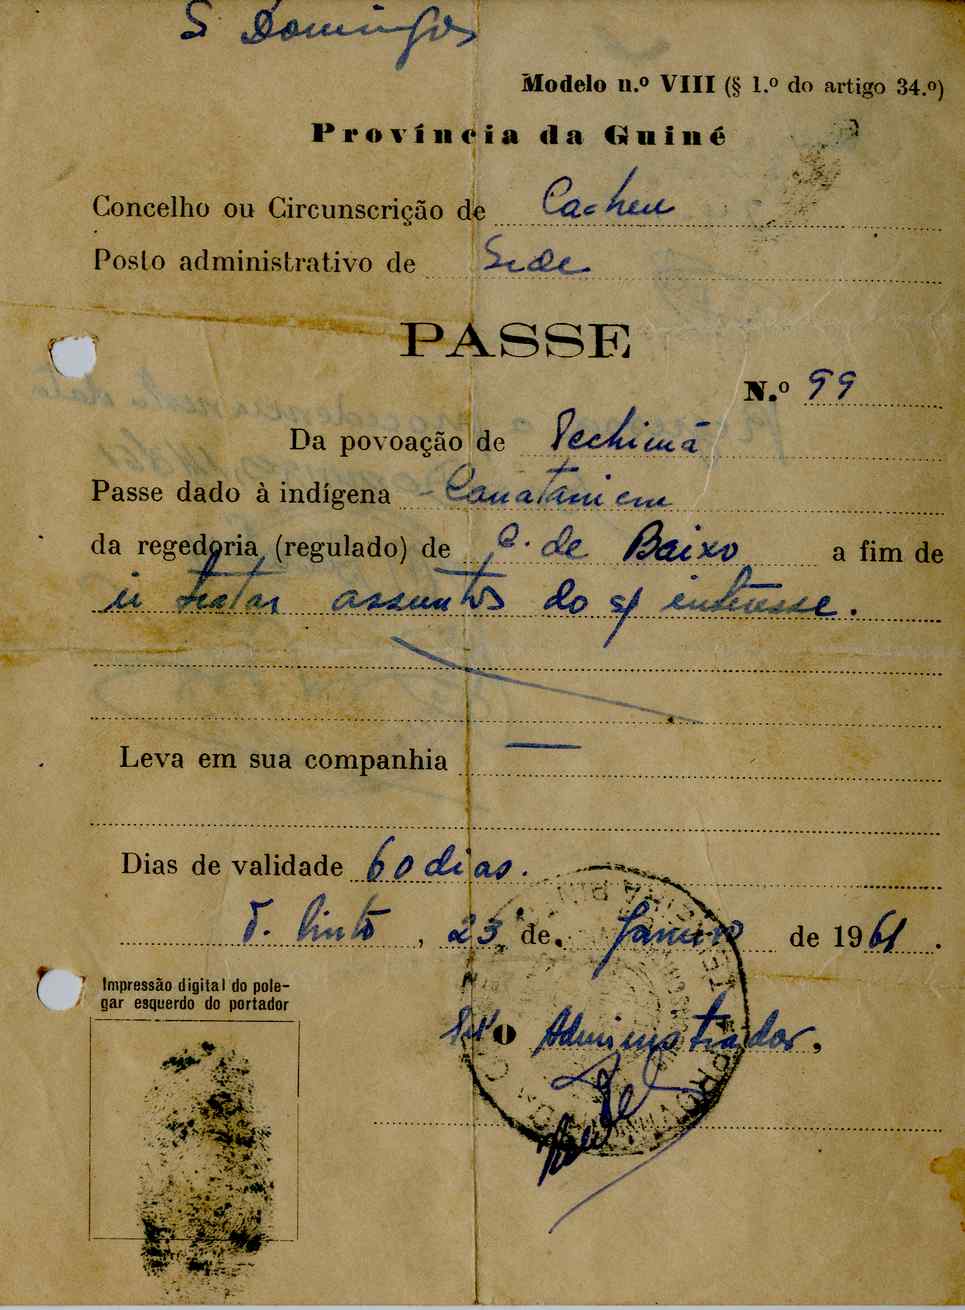 S Domingos
Modelo n.º VIII (§ 1.º do artigo 34.º)
Província da Guiné
Concelho ou Circunscrição de Cacheu
Posto administrativo de Sede
PASSE
N.º 99
Da povoação de Pechimã
Passe dado à indígena
da regedoria (regulado) de C. de Baixo a fim de
ir tratar assuntos do s/ interesse.
Leva em sua companhia
Dias de validade 60 dias.
T. Pinto, 23 de Janeiro de 1961.
Impressão digital do pole-
gar esquerdo do portador
O Administrador,